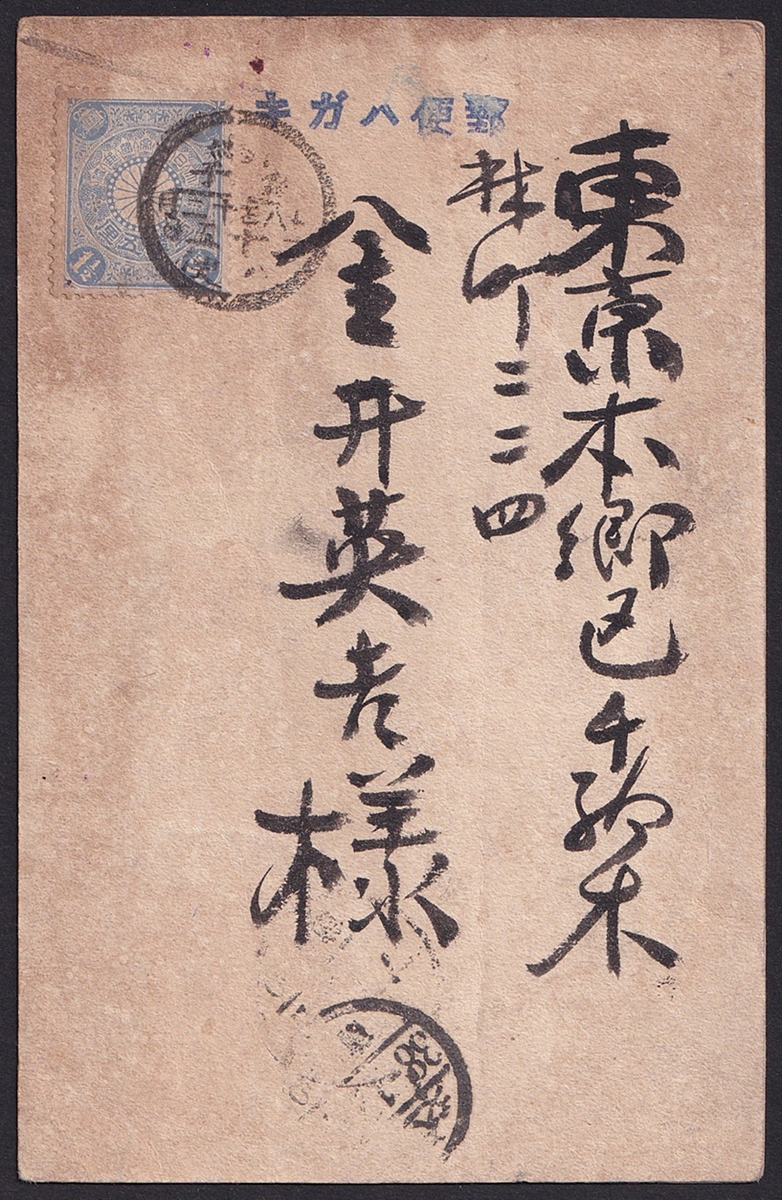 郵便ハガキ
東京本郷区千駄木
林町二二四
金井英吉様
1½